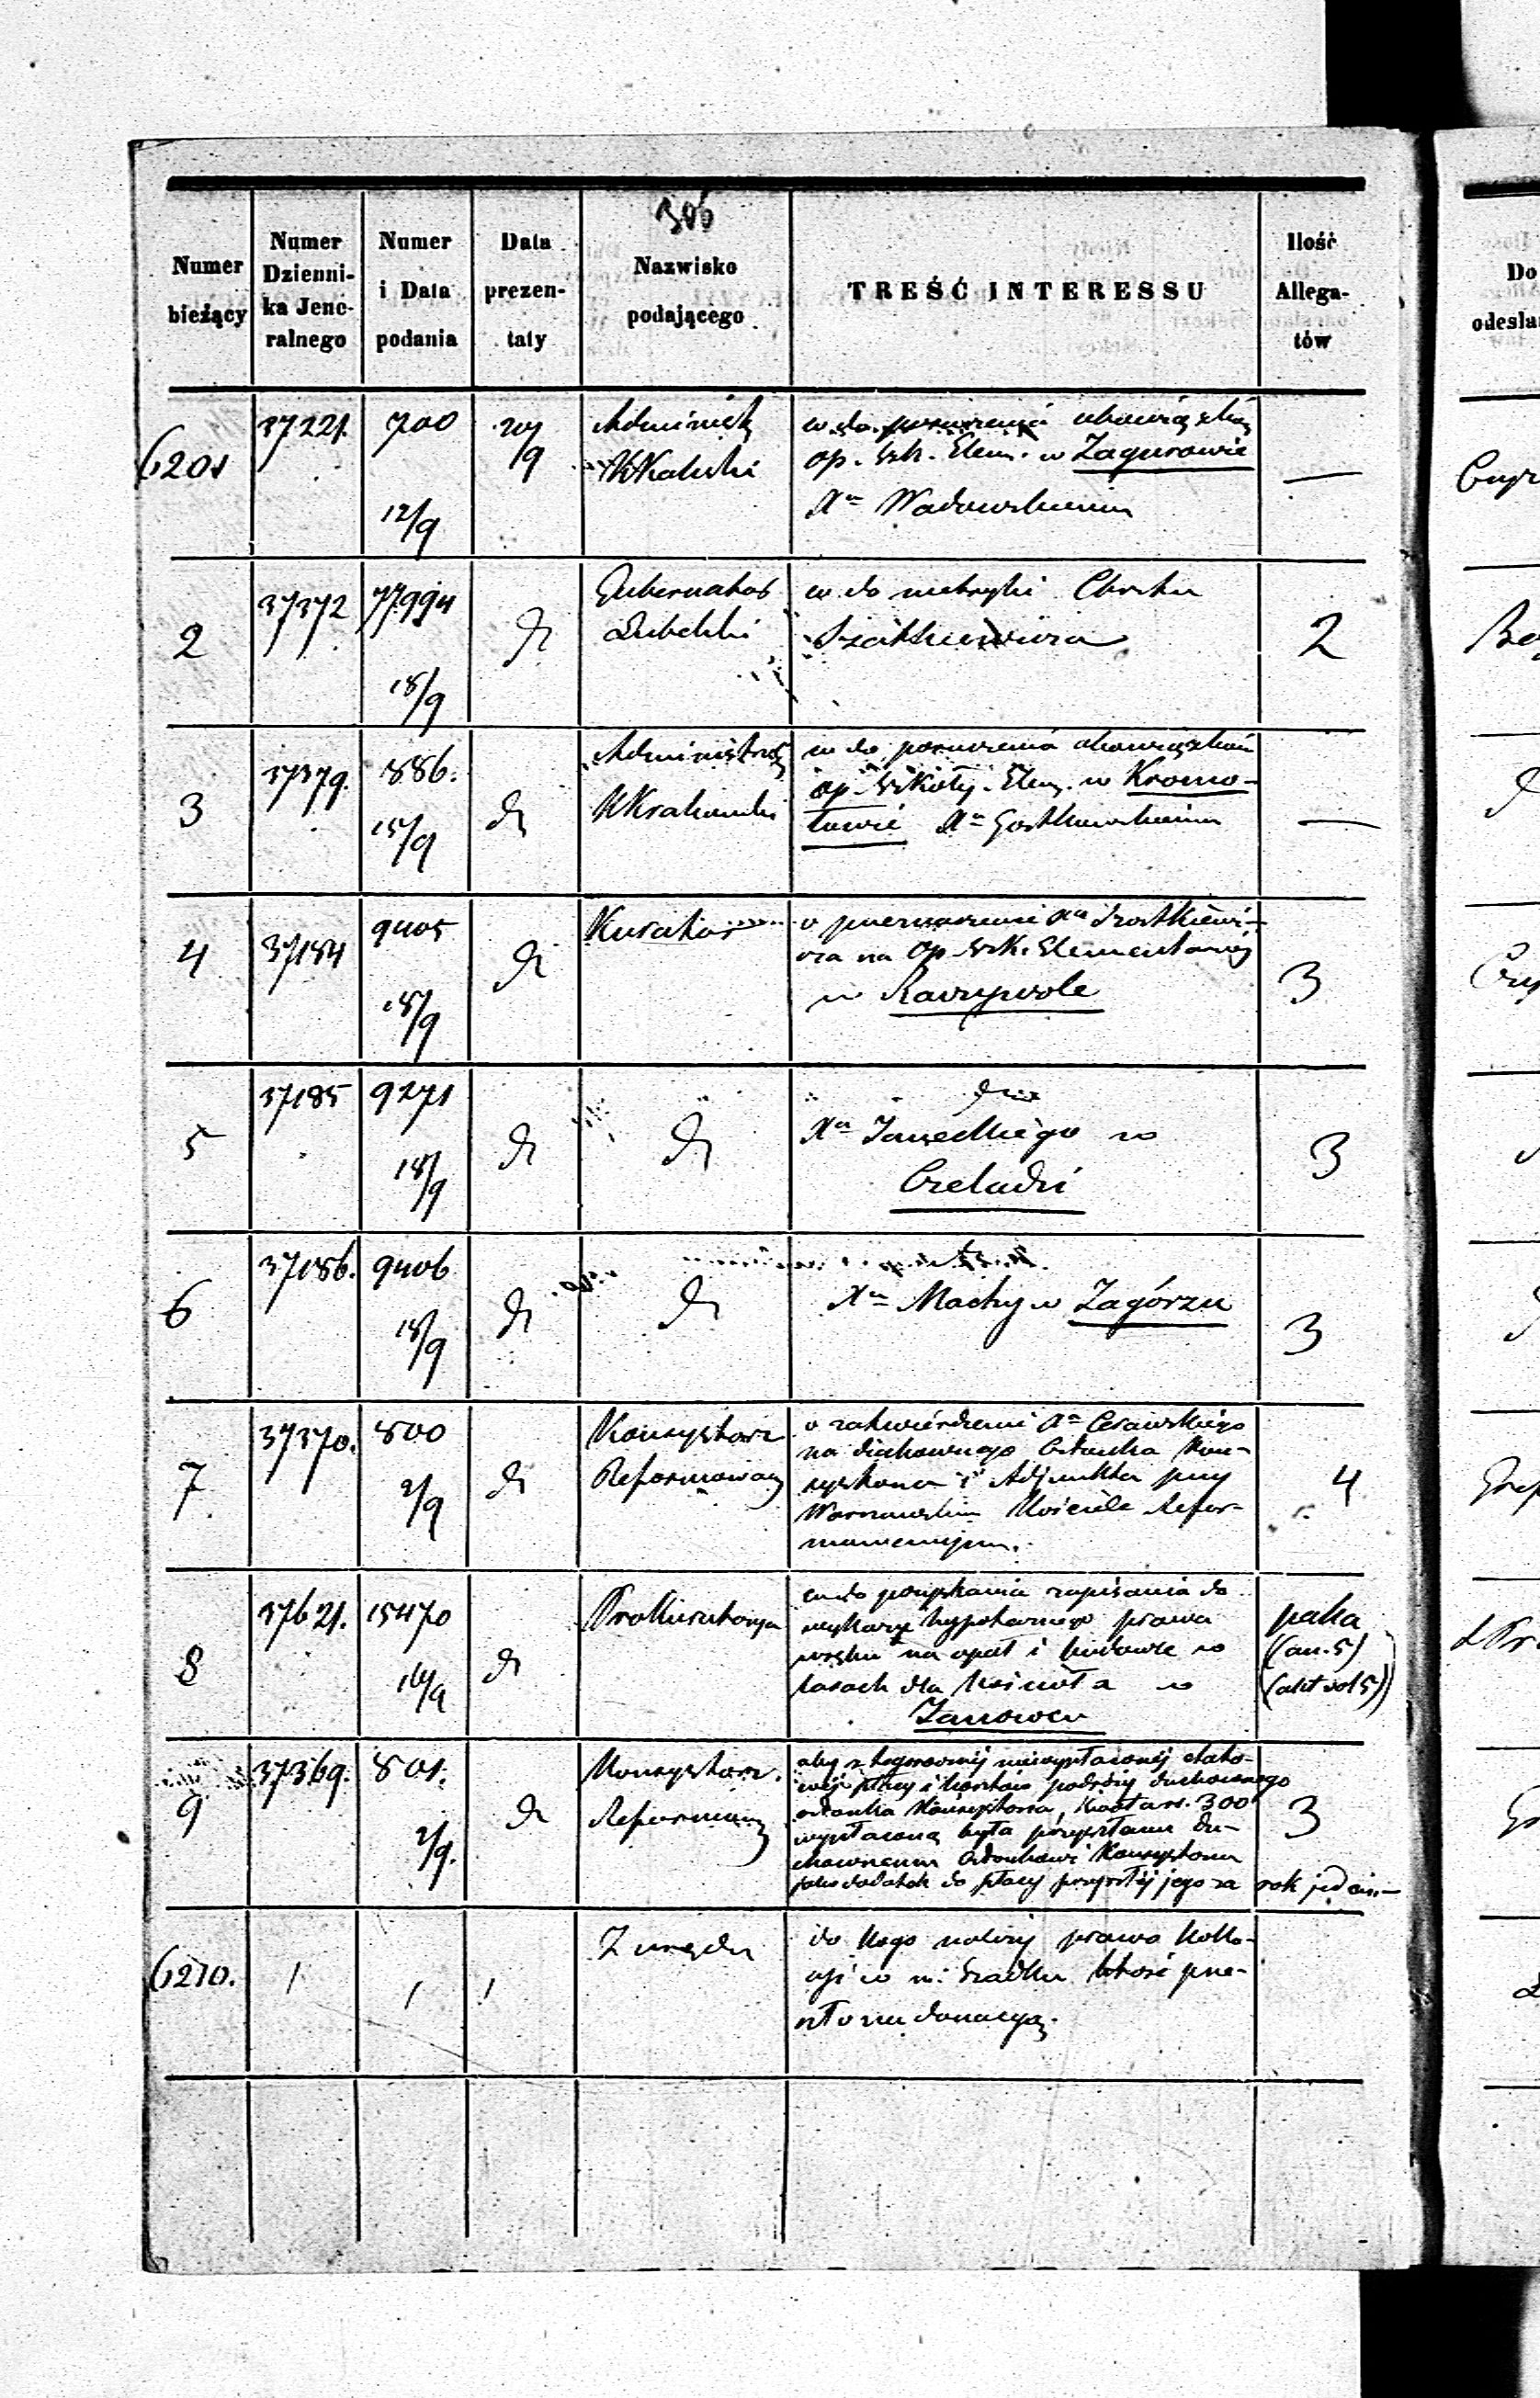 306
Numer bieżący
Numer Dzienni-ka Jene-ralnego
Numer i Data podania
Data prezen-taty
Nazwisko podającego
TREŚĆ INTERESSU
Ilość Allega-tów
Do
odesła
6201
37221.
700
12/9
20/9
Administ
KKaliski
w do poruczenia obowiązków
op. Szk. Elem. w Zagurowie
Xu Wadowskiemu
—
2
37372
77994
18/9
dt
Gubernator
Lubelski
w do metryki Chrztu
2
3
37379.
886.
15/9
dt
Administrac
KKrakowski
w do poruczenia obowiązków
op. Szkoły Elem. w Kromo-
łowie Xu Gostkowskiemu
—
4
37184
9405
18/9
dt
Kurator
o przeznaczenie Xa
cza na Op. Szk. Elementarnej
w Raczywole
3
5
37185
9271
18/9
dt
dt
dto
Xa w
Czeladzi
3
6
37186.
9406
18/9
dt
dt
Xa Machy w Zagórzu
3
7
37370.
800
2/9
dt
Konsystorz
Reformowany
o zatwierdzenie Xa
na duchownego Członka Kon-
systorza i Adjunkta przy
Warszawskim Kościele Refor-
mowanym.
4
8
37621.
15470
16/9
dt
Prokuratorya
w do pozyskania zapisania do
wykazu hypotecznego prawa
wrębu na opał i budowle w
lasach dla kościoła w
Janowcu
paka
9
37369.
801.
2/9.
dt
Konsystorz
Reformowany
aby z tegorocznej niewypłaconej etato-
wej płacy i kosztów podróży duchownego
członka Konsystorza, kwota rs. 300
wypłaconą była przyszłemu du-
chownemu Członkowi Konsystorza
jako dodatek do płacy przyszłej jego za rok jeden.—
6210.
/
/
/
Z urzędu
do kogo należy prawo kolla-
cyi w m. Szadku które prze-
szło na donacyą.